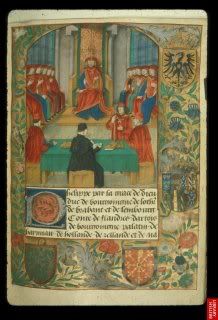 Phelippe par la grace de dieu
duc de bourgoingne de loth
de brabant et de lembourt
Conte de flandres dartoys
de bourgoingne palatin de
haynnau de hollande de zellande et de na